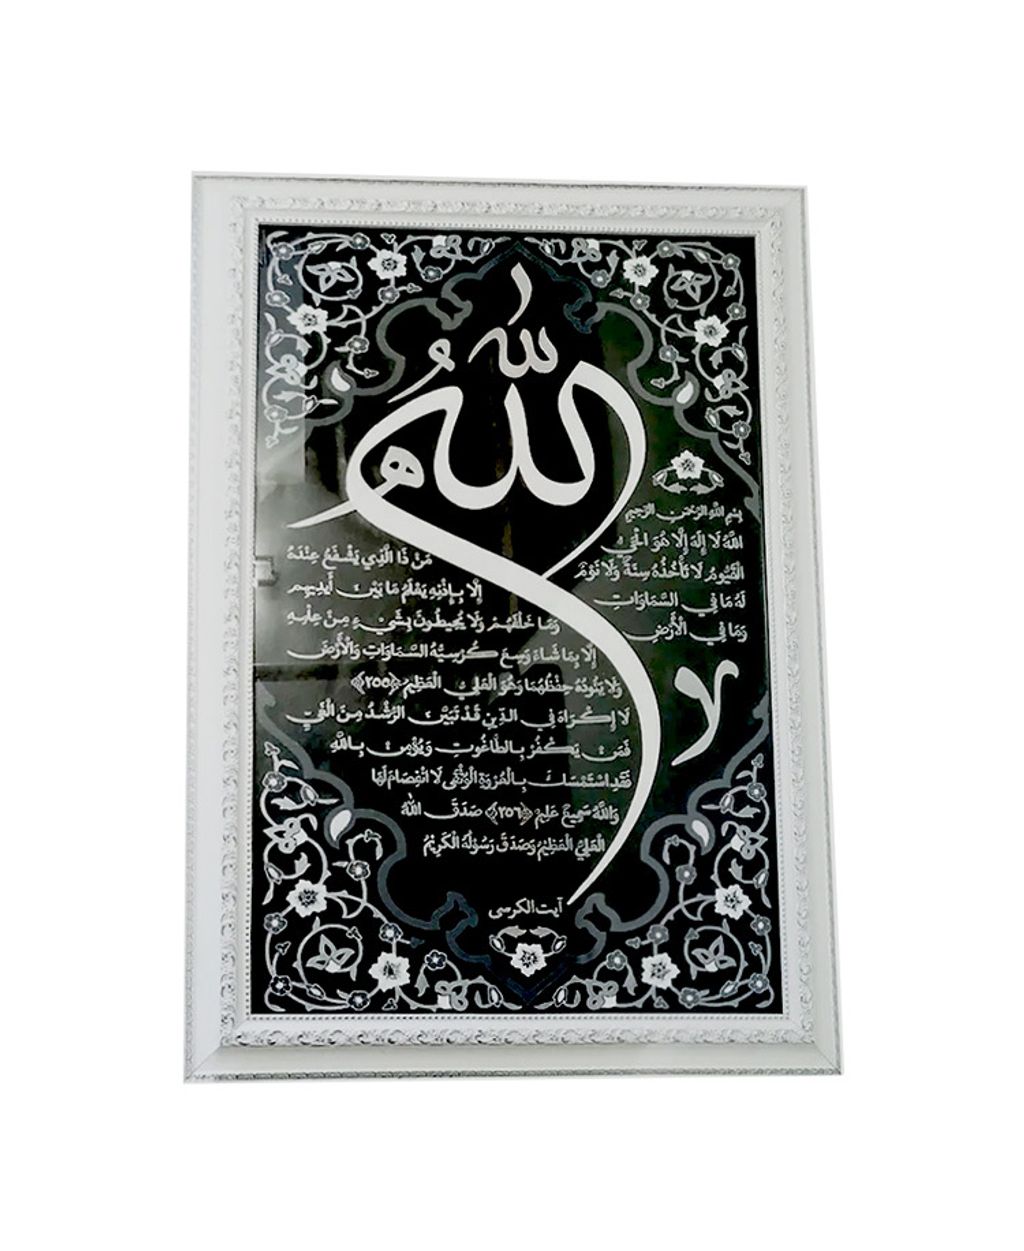 الله
بِسْمِ اللَّهِ الرَّحْمَنِ الرَّحِيمِ
اللَّهُ لَا إِلَهَ إِلَّا هُوَ الْحَيُّ
الْقَيُّومُ لَا تَأْخُذُهُ سِنَةٌ وَلَا نَوْمٌ
لَهُ مَا فِي السَّمَاوَاتِ
وَمَا فِي الْأَرْضِ
مَنْ ذَا الَّذِي يَشْفَعُ عِنْدَهُ
إِلَّا بِإِذْنِهِ يَعْلَمُ مَا بَيْنَ أَيْدِيهِم
وَمَا خَلْفَهُمْ وَلَا يُحِيطُونَ بِشَيْءٍ مِنْ عِلْمِهِ
إِلَّا بِمَا شَاءَ وَسِعَ كُرْسِيُّهُ السَّمَاوَاتِ وَالْأَرْضَ
وَلَا يَئُودُهُ حِفْظُهُمَا وَهُوَ الْعَلِيُّ الْعَظِيمُ ﴿٢٥٥﴾
لَا إِكْرَاهَ فِي الدِّينِ قَدْ تَبَيَّنَ الرُّشْدُ مِنَ الْغَيِّ
فَمَنْ يَكْفُرْ بِالطَّاغُوتِ وَيُؤْمِنْ بِاللَّهِ
فَقَدِ اسْتَمْسَكَ بِالْعُرْوَةِ الْوُثْقَى لَا انْفِصَامَ لَهَا
وَاللَّهُ سَمِيعٌ عَلِيمٌ ﴿٢٥٦﴾ صَدَقَ اللَّهُ
الْعَلِيُّ الْعَظِيمُ وَصَدَقَ رَسُولُهُ الْكَرِيمُ
آیت الکرسی